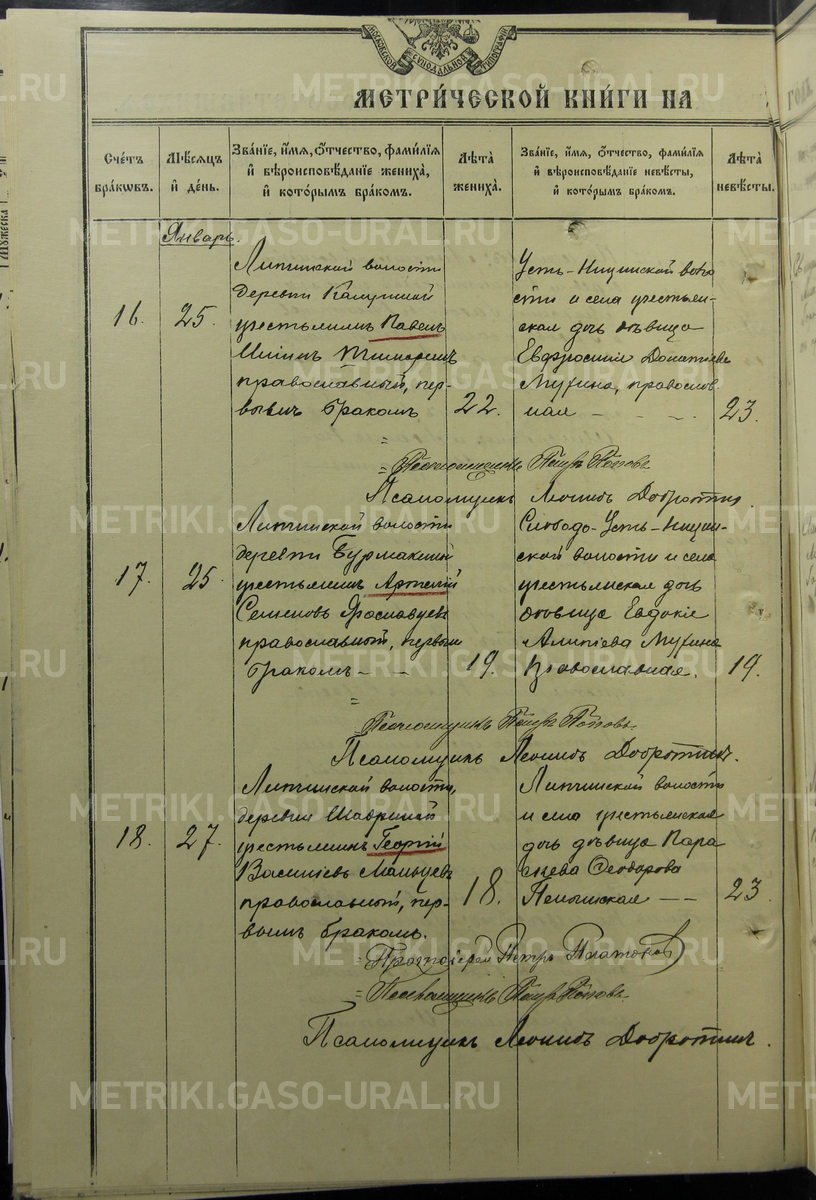 МОСКОВСКОЙ СѴНОДАЛЬНОЙ ТИПОГРАФІИ
МЕТРИ́ЧЕСКОЙ КНИ́ГИ НА
ГОДЪ
Сче́тъ
бра́кωвъ.
Мѣ́сяцъ
и҆ де́нь.
Зва́нїе, и҆́мя, ѻ҆́тчество, фами́лїя
и҆ вѣроисповѣ́данїе жениха̀,
и҆ кото́рымъ бра́комъ.
Лѣ́та
жениха̀.
Зва́нїе, и҆́мя, ѻ҆́тчество, фами́лїя
и҆ вѣроисповѣ́данїе невѣ́сты,
и҆ кото́рымъ бра́комъ.
Лѣ́та
невѣ́сты.
Январь.
16.
25.
Липчинской волости
деревни
крестьянинъ Павелъ
православный, пер-
вымъ бракомъ
22.
Усть-Ницинской воло
сти и села крестьян-
ская дочь дѣвица
Евфросинія Донатіева
Мухина, православ
ная - - -
23.
Петръ Поповъ
Псаломщикъ Леонидъ Добротинъ
17.
25.
Липчинской волости
деревни Бурмакиной
крестьянинъ Артемій
Семеновъ Ярославцевъ
православный, первымъ
бракомъ - -
19.
Слободо-Усть-Ницин-
ской волости и села
крестьянская дочь
дѣвица Евдокія
Алипіева Мухина
православная.
19.
Петръ Поповъ
Псаломщикъ Леонидъ Добротинъ.
18.
27.
Липчинской волости,
деревни Шавриной
крестьянинъ Георгій
Василіевъ Мальцевъ
православный, пер-
вымъ бракомъ.
18.
Липчинской волости
и села крестьянская
дочь дѣвица Пара
скева Ѳеодорова
- -
23
Протоіерей Петръ Платоновъ
Петръ Поповъ
Псаломщикъ Леонидъ Добротинъ.
METRIKI.GASO-URAL.RU